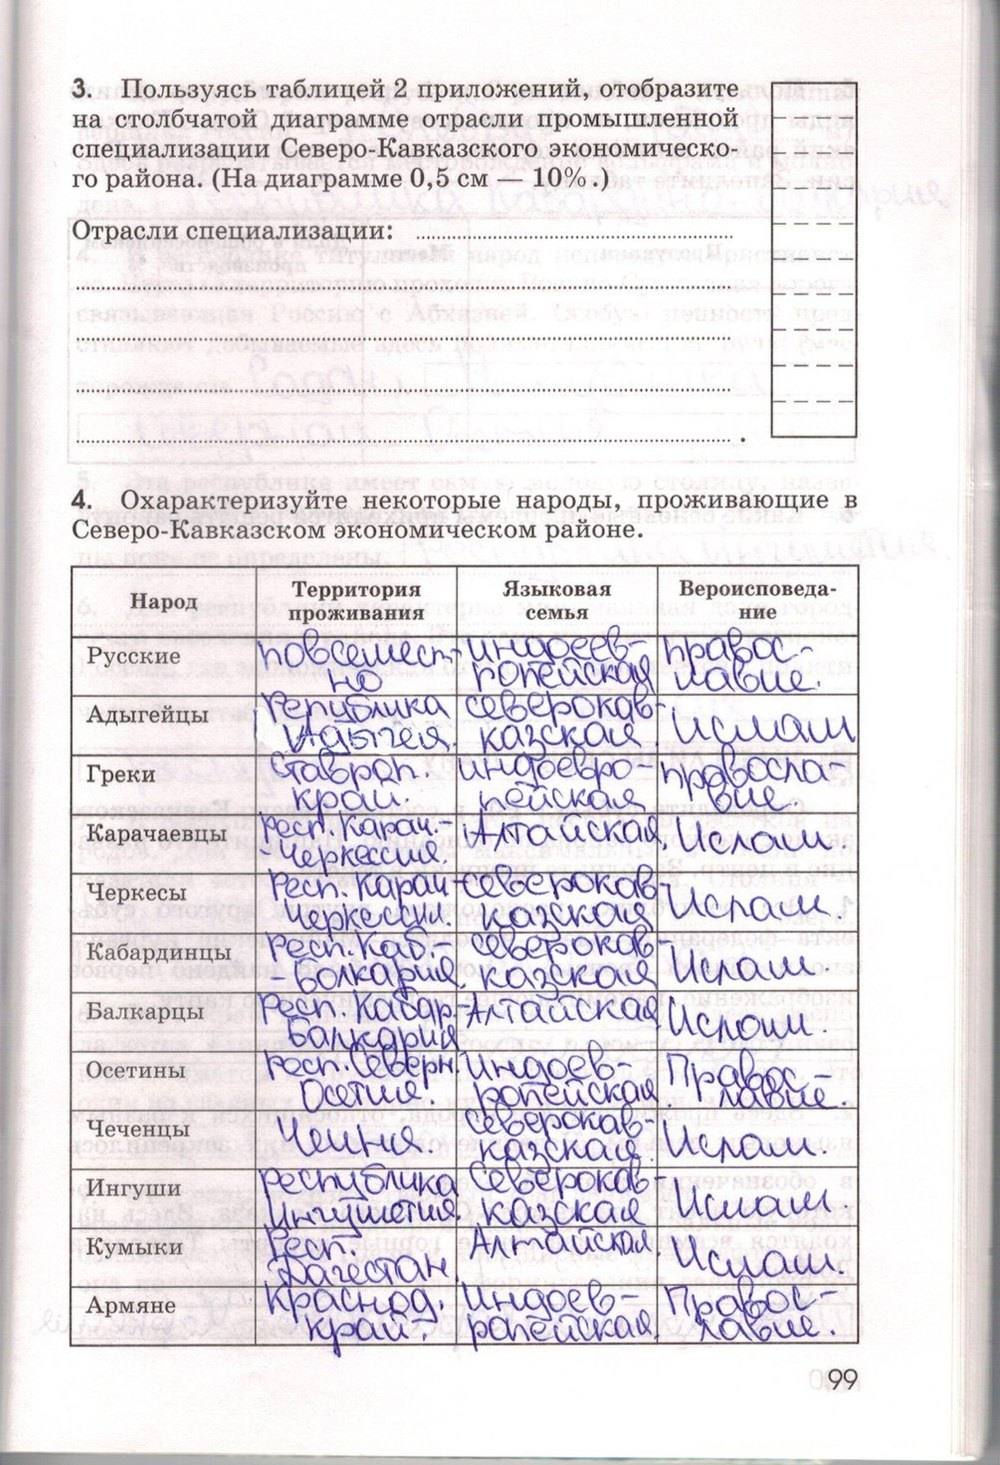 3. Пользуясь таблицей 2 приложений, отобразите
на столбчатой диаграмме отрасли промышленной
специализации Северо-Кавказского экономическо-
го района. (На диаграмме 0,5 см — 10%.)
Отрасли специализации:
4. Охарактеризуйте некоторые народы, проживающие в
Северо-Кавказском экономическом районе.
Народ
Территория
проживания
Языковая
семья
Вероисповеда-
ние
Русские
повсемест-
но
индоев-
ропейская
правос-
лавие.
Адыгейцы
Республика
Адыгея.
северокав-
казская
Ислам
Греки
Ставроп.
край.
индоевро-
пейская
правосла-
вие.
Карачаевцы
респ. Карач.-
Черкессия.
Алтайская
Ислам.
Черкесы
Респ. Карач-
Черкессия.
северокав-
казская
Ислам.
Кабардинцы
Респ. Каб.
- Болкария.
северокав-
казская
Ислам.
Балкарцы
Респ. Кабар.-
Балкария
Алтайская
Ислам.
Осетины
Респ. Северн.
Осетия.
Индоев-
ропейская
Правос-
лавие.
Чеченцы
Чечня.
Северокав-
казская.
Ислам.
Ингуши
Республика
Ингушетия.
Северокав-
казская
Ислам
Кумыки
Респ.
Дагестан.
Алтайская
Ислам.
Армяне
Краснод.
край.
Индоев-
ропейская.
Правос-
лавие.
99